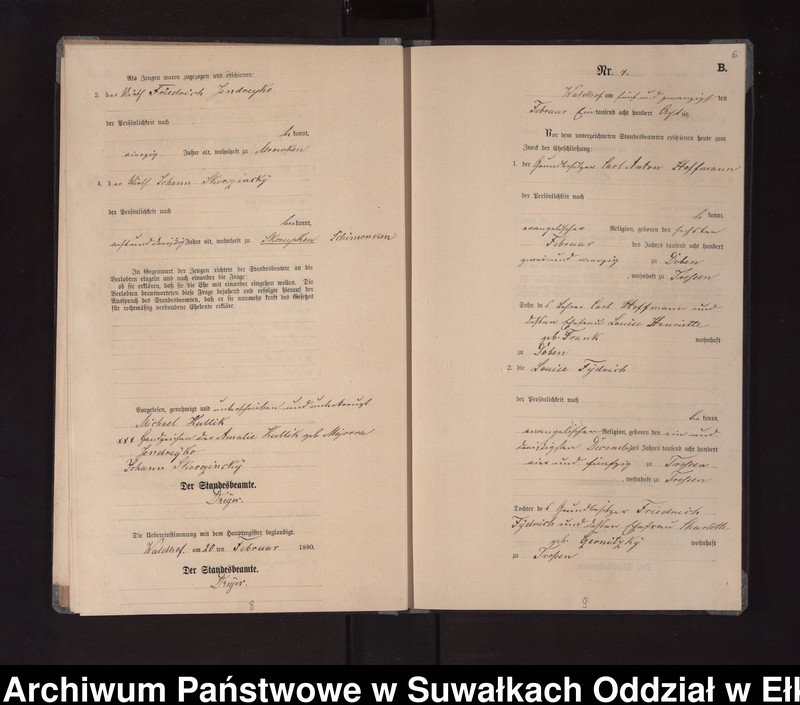 Als Zeugen waren zugezogen und erschienen:
3. der Wirth Friedrich Jendreyko
der Persönlichkeit nach
be kannt,
vierzig Jahre alt, wohnhaft zu Mrowken
4. der Wirth Johann Skorzinsky
der Persönlichkeit nach
be kannt,
achtunddreißig Jahre alt, wohnhaft zu Skrupken Schimonken
In Gegenwart der Zeugen richtete der Standesbeamte an die
Verlobten einzeln und nach einander die Frage:
ob sie erklären, daß sie die Ehe mit einander eingehen wollen. Die
Verlobten beantworteten diese Frage bejahend und erfolgte hierauf der
Ausspruch des Standesbeamten, daß er sie nunmehr kraft des Gesetzes
für rechtmäßig verbundene Eheleute erkläre.
Vorgelesen, genehmigt und unterschrieben und unterkreuzt
Michael Kullik
xxx Handzeichen der Amalie Kullik geb
Jendreyko
Johann Skorzinsky
Der Standesbeamte.
Dreyer.
Die Uebereinstimmung mit dem Hauptregister beglaubigt
Waldhof, am 20 ten Februar 1880.
Der Standesbeamte.
Dreyer.
8
6
Nr. 4.
B.
Waldhof am fünf und zwanzigst ten
Februar Ein tausend acht hundert Acht zig
Vor dem unterzeichneten Standesbeamten erschienen heute zum
Zweck der Eheschließung:
1. der Grundbesitzer Carl Anton Hoffmann
der Persönlichkeit nach
be kannt,
evangelischer Religion, geboren den sechsten
Februar des Jahres tausend acht hundert
zwei und vierzig zu Doben
, wohnhaft zu Trossen
Sohn des Lehrer Carl Hoffmann und
dessen Ehefrau Louise Henriette
geb. Frank wohnhaft
zu Doben
2. die Louise Fydrich
der Persönlichkeit nach
be kannt,
evangelischer Religion, geboren den ein und
dreißigsten December des Jahres tausend acht hundert
vier und fünfzig zu Trossen
, wohnhaft zu Trossen
Tochter des Grundbesitzer Friedrich
Fydrich und dessen Ehefrau Charlotte
geb. Czernitzky wohnhaft
zu Trossen
9
Archiwum Państwowe w Suwałkach Oddział w Ełk